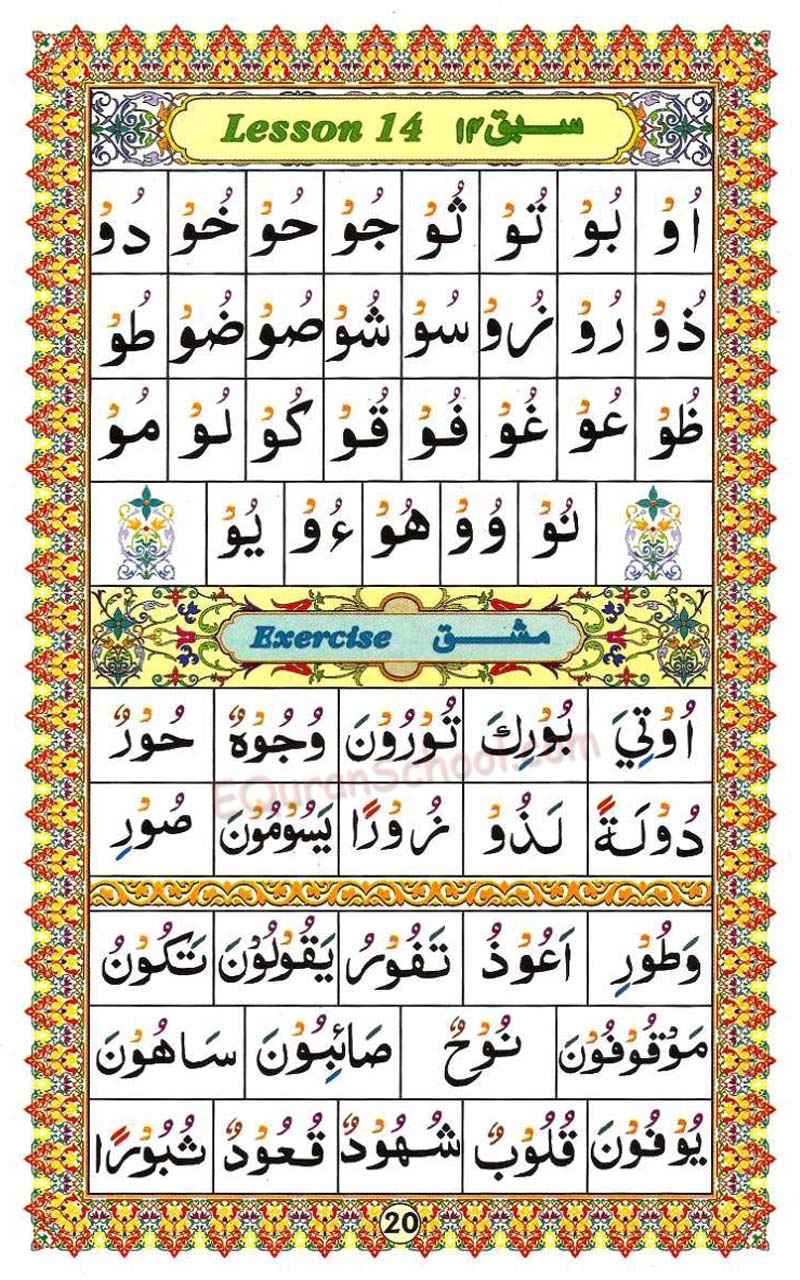 Lesson 14 سبق ۱۴
اُوْ بُوْ تُوْ ثُوْ جُوْ حُوْ خُوْ دُوْ
ذُوْ رُوْ زُوْ سُوْ شُوْ صُوْ ضُوْ طُوْ
ظُوْ عُوْ غُوْ فُوْ قُوْ كُوْ لُوْ مُوْ
نُوْ وُوْ هُوْ ءُوْ يُوْ
Exercise مشق
اُوْتِيَ بُوْرِكَ تُوْرُوْنَ وُجُوْهٌ حُوْرٌ
EQuranSchool.com
دُوْلَةً لَذُوْ زُوْرًا يَسُوْمُوْنَ صُوْرِ
وَطُوْرِ اَعُوْذُ تَفُوْرُ يَقُوْلُوْنَ تَكُوْنُ
مَوْقُوْفُوْنَ نُوْحٌ صَائِبُوْنَ سَاهُوْنَ
يُوْفُوْنَ قُلُوْبٌ شُهُوْدٌ قُعُوْدٌ ثُبُوْرًا
20